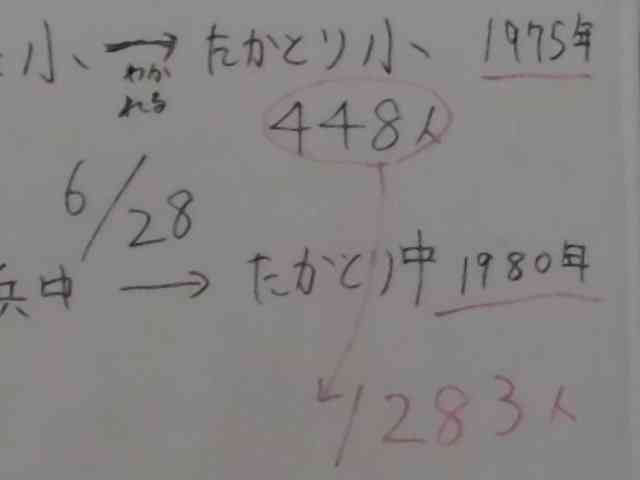 小 → たかとり小 1975年
わか
れる
448人
6/28
兵中 → たかとり中 1980年
1283人